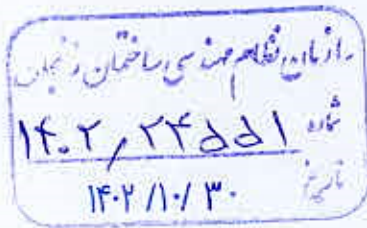 سازمان نظام مهندسی ساختمان زنجان
شماره ۱۴۰۲,۲۴۵۵۱
تاریخ ۱۴۰۲/۱۰/۳۰